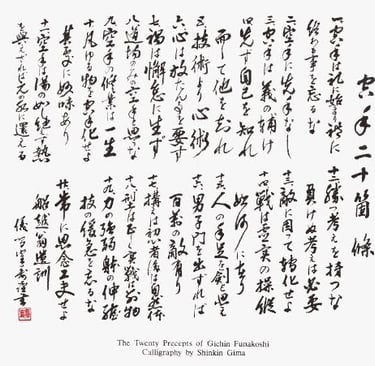 空手二十箇條
一空手は礼に始り礼に
終わる事を忘るな
二空手に先手なし
三空手は義の輔け
四先ず自己を知れ
而して他を知れ
五技術より心術
六心は放たん事を要す
七禍は懈怠に生ず
八道場のみの空手と思ふな
九空手の修業は一生
十凡ゆる物を空手化せよ
其処に妙味あり
十一空手は湯の如し絶えず熱
を与えざれば元の水に還える
十二勝つ考えを持つな
負けぬ考えは必要
十三敵に因って轉化せよ
十四戦は虚実の操縦
如何に在り
十五人の手足を剣と思え
十六男子門を出ずれば
百万の敵有り
十七構えは初心者に後は自然体
十八型は正しく実戦は別物
十九力の強弱体の伸縮
技の緩急を忘るな
廿常に思念工夫せよ
船越翁遺訓
儀間真謹書
The Twenty Precepts of Gichin Funakoshi
Calligraphy by Shinkin Gima